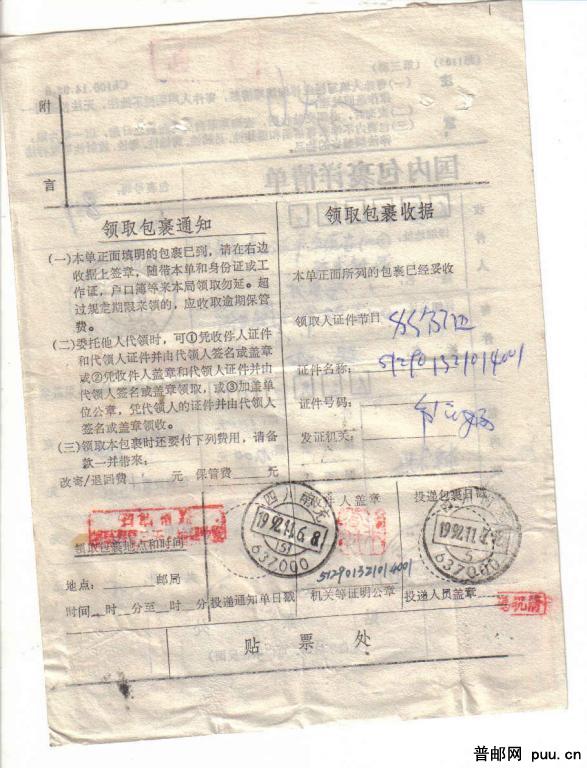 附
言
领取包裹通知
(一)本单正面填明的包裹已到,请在右边
收据上签章,随带本单和身份证或工
作证,户口簿等来本局领取勿延。超
过规定期限来领的,应收取逾期保管
费。
(二)委托他人代领时,可①凭收件人证件
和代领人证件并由代领人签名或盖章
或②凭收件人盖章和代领人证件并由
代领人签名或盖章领取,或③加盖单
位公章,凭代领人的证件并由代领人
签名或盖章领收。
(三)领取本包裹时还要付下列费用,请备
款一并带来:
改寄/退回费 元 保管费 元
领取包裹收据
本单正面所列的包裹已经妥收
领取人证件节目
证件名称:
512901321014001
证件号码:
发证机关:
领取包裹地点和时间
地点: 邮局
时间 时 分至 时 分
四川南充
1992.11.6.8
(5)
637000
投递通知单日戳
件人盖章
512901321014001
机关等证明公章
投递包裹日
1992.11
637000
投递人员盖章
贴票处
普邮网 puu.cn